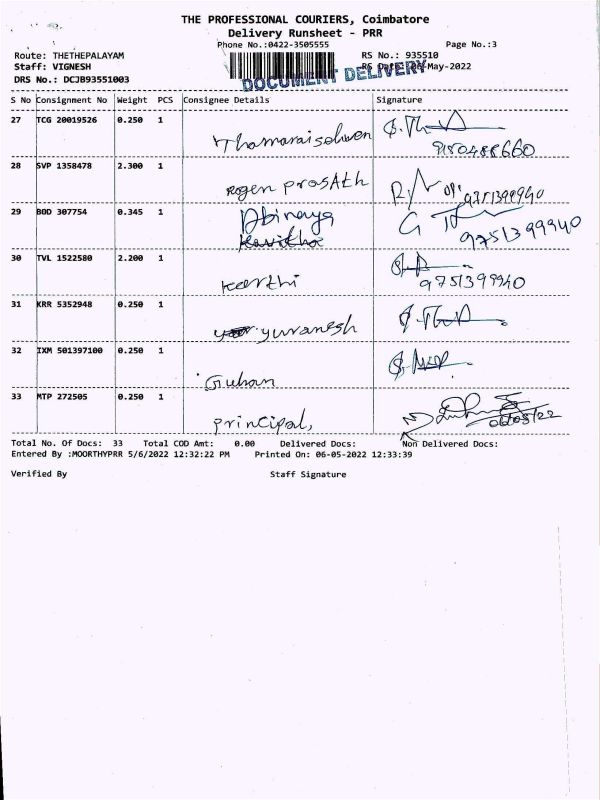 THE PROFESSIONAL COURIERS, Coimbatore
Delivery Runsheet - PRR
Phone No.:0422-3505555 Page No.:3
Route: THETHEPALAYAM RS No.: 935510
Staff: VIGNESH RS Date: 06-May-2022
DOCUMENT DELIVERY
DRS No.: DCJB93551003
S No Consignment No Weight PCS Consignee Details Signature
27 TCG 20019526 0.250 1 Thamaraiselven
9180488660
28 SVP 1358478 2.300 1 rogen prosAth 9751399940
29 BOD 307754 0.345 1 Abinaya
Kavitha 9751399940
30 TVL 1522580 2.200 1 keerthi 9751399940
31 KRR 5352948 0.250 1 yuvanesh
32 IXM 501397100 0.250 1 Guhan
33 MTP 272505 0.250 1 principal, 06/05/22
Total No. Of Docs: 33 Total COD Amt: 0.00 Delivered Docs: Non Delivered Docs:
Entered By :MOORTHYPRR 5/6/2022 12:32:22 PM Printed On: 06-05-2022 12:33:39
Verified By Staff Signature